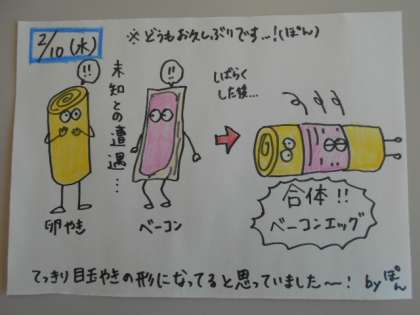 2/10(水)
※どうもお久しぶりです…!(ぽん)
!!
未知との遭遇…
!!
しばらく
した後…
卵やき
ベーコン
合体!!
ベーコンエッグ
てっきり目玉やきの形になってると思っていました〜! by ぽん